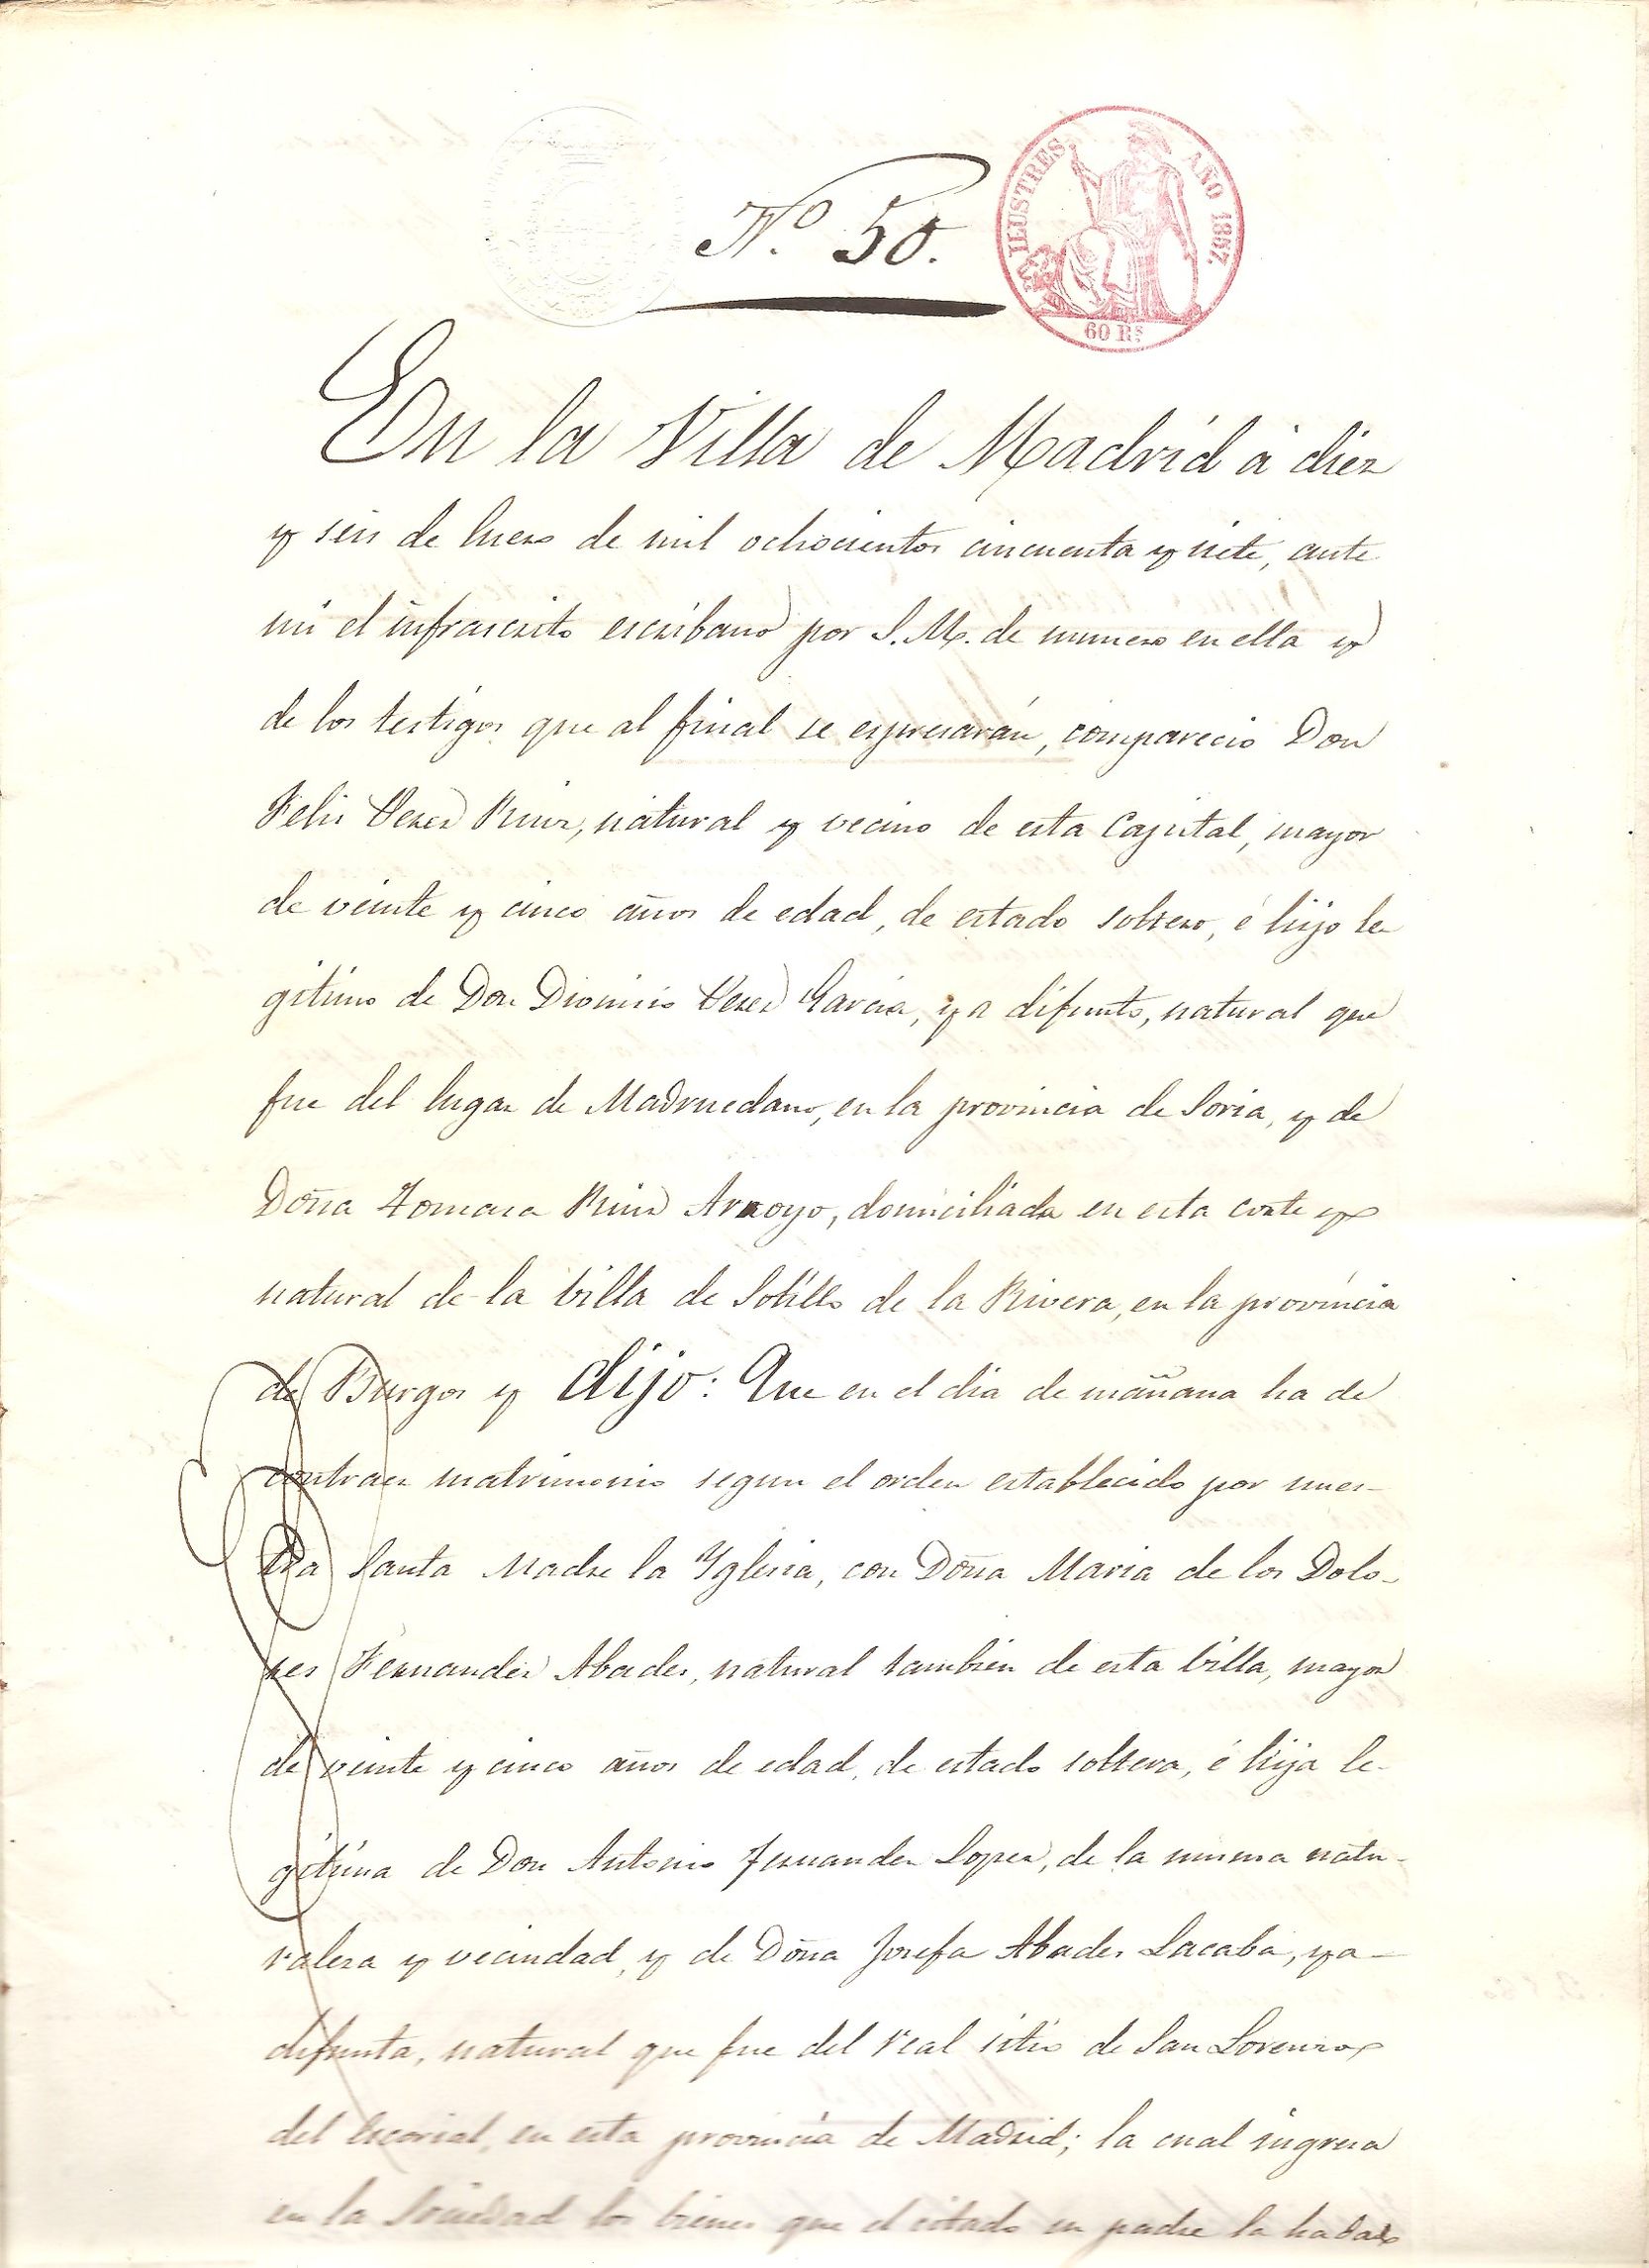 Nº 50.
ILUSTRES AÑO 1857.
60 Rs
En la Villa de Madrid á diez
y seis de Enero de mil ochocientos cincuenta y siete, ante
mi el infrascrito escribano por S. M. de numero en ella y
de los testigos que al final se espresarán, comparecio Don
Felix Perez Ruiz, natural y vecino de esta Capital, mayor
de veinte y cinco años de edad, de estado soltero, é hijo le
gitimo de Don Dionisio Perez Garcia, ya difunto, natural que
fue del lugar de Madruedano, en la provincia de Soria, y de
Doña Tomasa Ruiz Arroyo, domiciliada en esta corte y
natural de la villa de Sotillo de la Rivera, en la provincia
de Burgos y dijo: Que en el dia de mañana ha de
contraer matrimonio segun el orden establecido por nues-
tra Santa Madre la Yglesia, con Doña Maria de los Dolo-
res Fernandez Abades, natural tambien de esta villa, mayor
de veinte y cinco años de edad, de estado soltera, é hija le-
gitima de Don Antonio Fernandez Lopez, de la misma natu-
raleza y vecindad, y de Doña Josefa Abades Lacaba, ya
difunta, natural que fue del real sitio de San Lorenzo
del Escorial, en esta provincia de Madrid; la cual ingresa
en la Sociedad los bienes que el citado su padre la ha dado